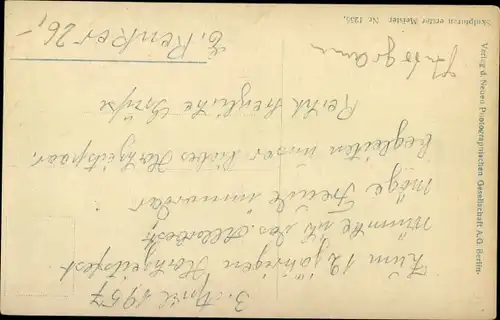 3. April 1957
Zum 12 jährigen Hochzeitsfest
wünsche ich das Allerbeste
möge Freude immerdar
begleiten unser liebes Hochzeitspaar.
Recht herzliche Grüße
E. Renker 26,-
Skulpturen erster Meister. Nr. 1235.
Verlag d. Neuen Photographischen Gesellschaft A.G. Berlin-